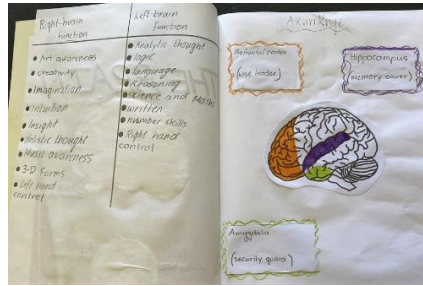 Right-brain
function
• Art awareness
• creativity
• Imagination
• Intuition
• Insight
• Holistic thought
• Music awareness
• 3-D forms
• Left hand
control
Left-brain
function
• Analytic thought
• logic
• language
• Reasoning
• Science and Maths
• written
• number skills
• Right hand
control
Prefrontal cortex
(wise leader)
Hippocampus
(memory saver)
Amygdala
(security guard)